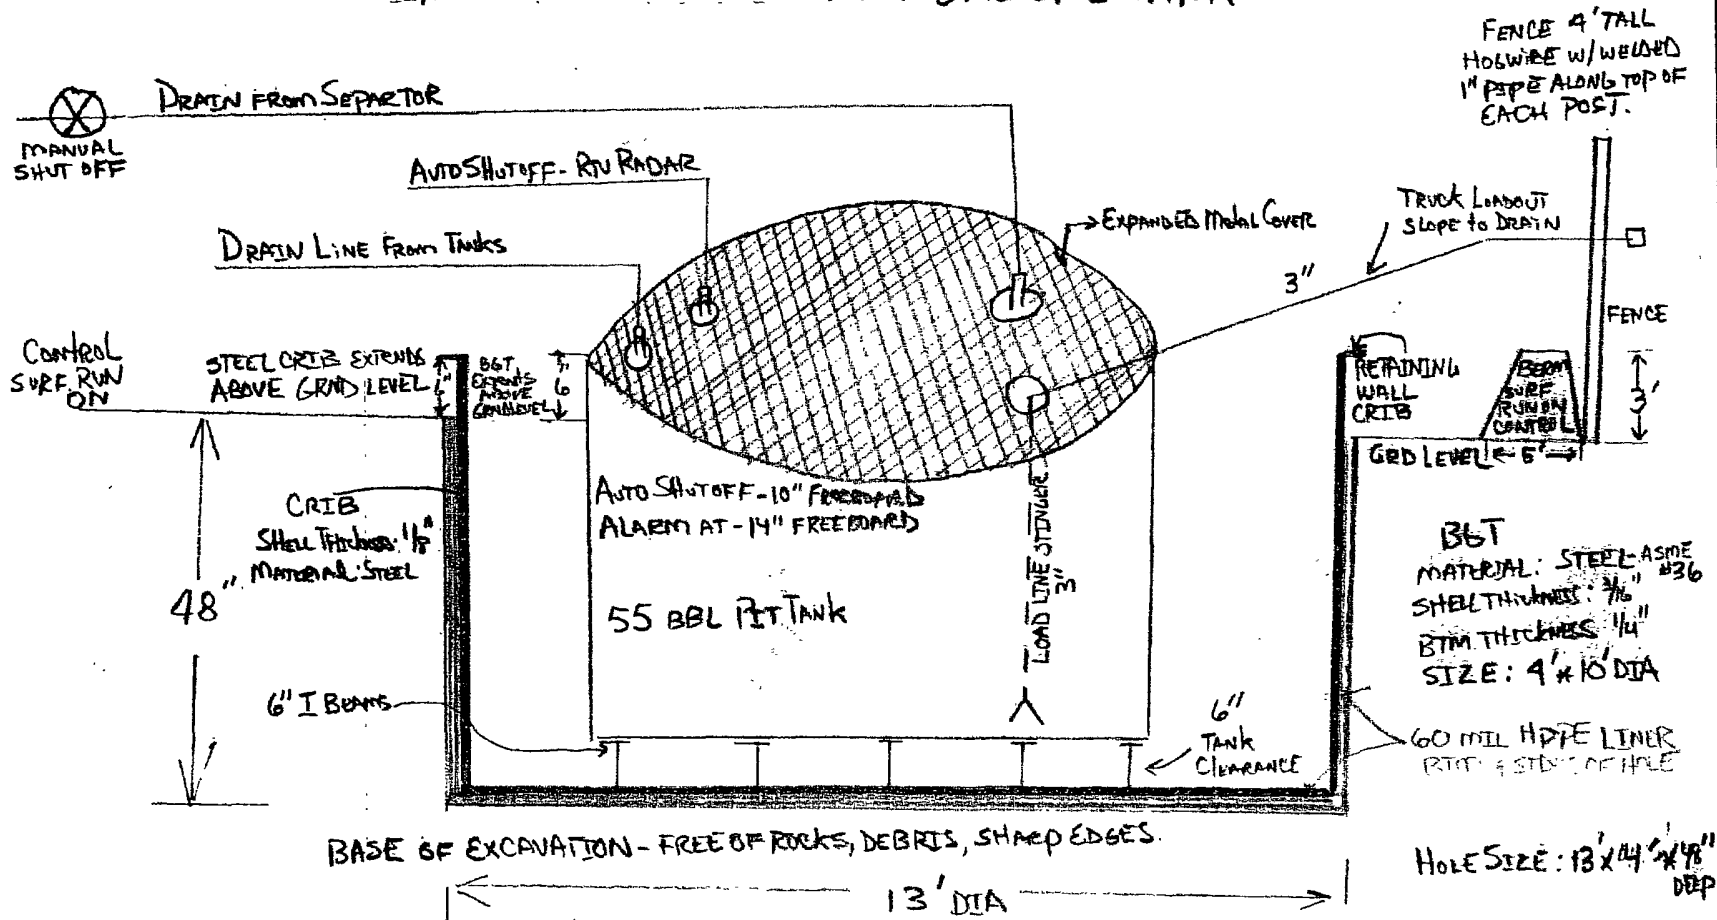 FENCE 4' TALL
HOGWIRE W/WELDED
1" PIPE ALONG TOP OF
EACH POST.
DRAIN FROM SEPARTOR
MANUAL
SHUT OFF
AUTO SHUTOFF - RTU RADAR
DRAIN LINE FROM TANKS
EXPANDED METAL COVER
TRUCK LOADOUT
SLOPE TO DRAIN
3"
FENCE
CONTROL
SURF. RUN
ON
STEEL CRIB EXTENDS
ABOVE GRND LEVEL 6"
BGT
EXTENTS
ABOVE
GRNDLEVEL
6"
RETAINING
WALL
CRIB
BERM
SURF
RUN ON
CONTROL
3'
GRD LEVEL
5'
CRIB
SHELL THICKNESS: 1/8"
MATERIAL: STEEL
48"
AUTO SHUTOFF - 10" FREEBOARD
ALARM AT - 14" FREEBOARD
55 BBL PIT TANK
LOAD LINE STINGER
3"
6" I BEAMS
6"
TANK
CLEARANCE
BGT
MATERIAL: STEEL-ASME
#36
SHELL THICKNESS: 3/16"
BTM THICKNESS 1/4"
SIZE: 4' x 10' DIA
60 MIL HDPE LINER
BTM & SIDES OF HOLE
BASE OF EXCAVATION - FREE OF ROCKS, DEBRIS, SHARP EDGES.
HOLE SIZE: 13' X 14' X 48"
DEEP
13' DIA